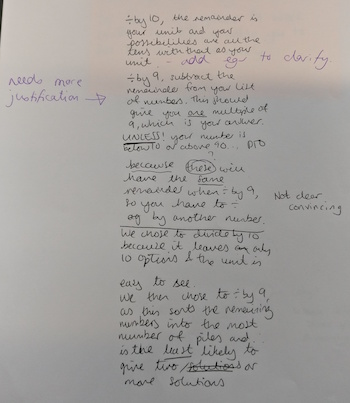 ÷ by 10, the remainder is
your unit and your
possibilities are all the
tens with that as your
unit. - add egs to clarify.
÷ by 9, subtract the
remainder from your list
of numbers. This should
give you one multiple of
9, which is your answer.
UNLESS! your number is
below 10 or above 90... PTO
needs more
justification →
?
because these will
have the same
remainder when ÷ by 9,
so you have to ÷
eg by another number.
Not clear
convincing
We chose to divide by 10
because it leaves only
10 options & the unit is
easy to see
We then chose to ÷ by 9,
as this sorts the remaining
numbers into the most
number of piles and
is the least likely to
give two / solutions or
more solutions